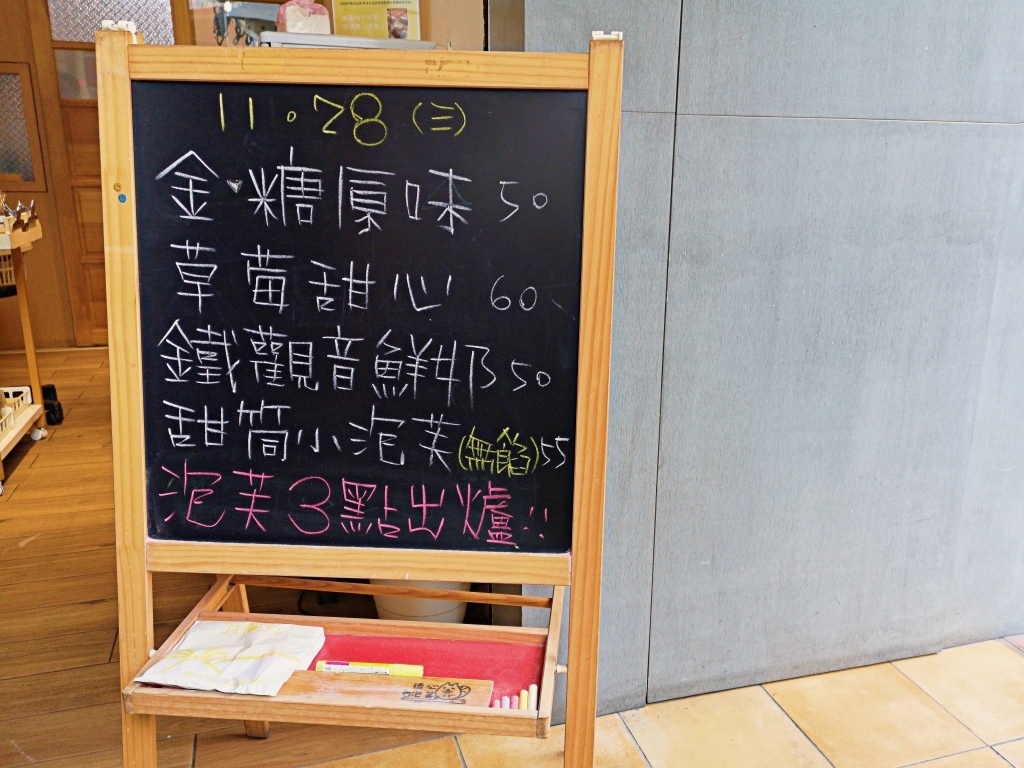 11.28 (三)
金♥糖原味 50
草莓甜心 60
鐵觀音鮮奶 50
甜筒小泡芙(無餡) 55
泡芙3點出爐!!